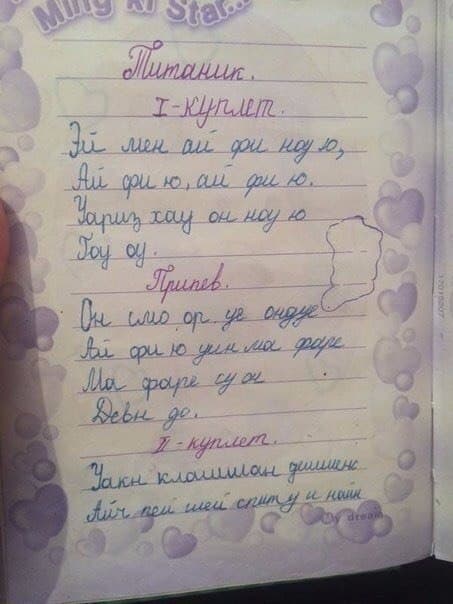 Ming xi Star...
Титаник.
I-куплет.
Эй мен ай фи ноу ю,
Ай фи ю, ай фи ю.
Уариз хау он ноу ю
Гоу оу.
Припев.
Он смо ор уе ондуе
Ай фи ю уин ма фаре
Ма фаре су он
Девн до.
II-куплет.
Уакн клашиан дишиенс
Айч пей шей спиту и найн
My dream